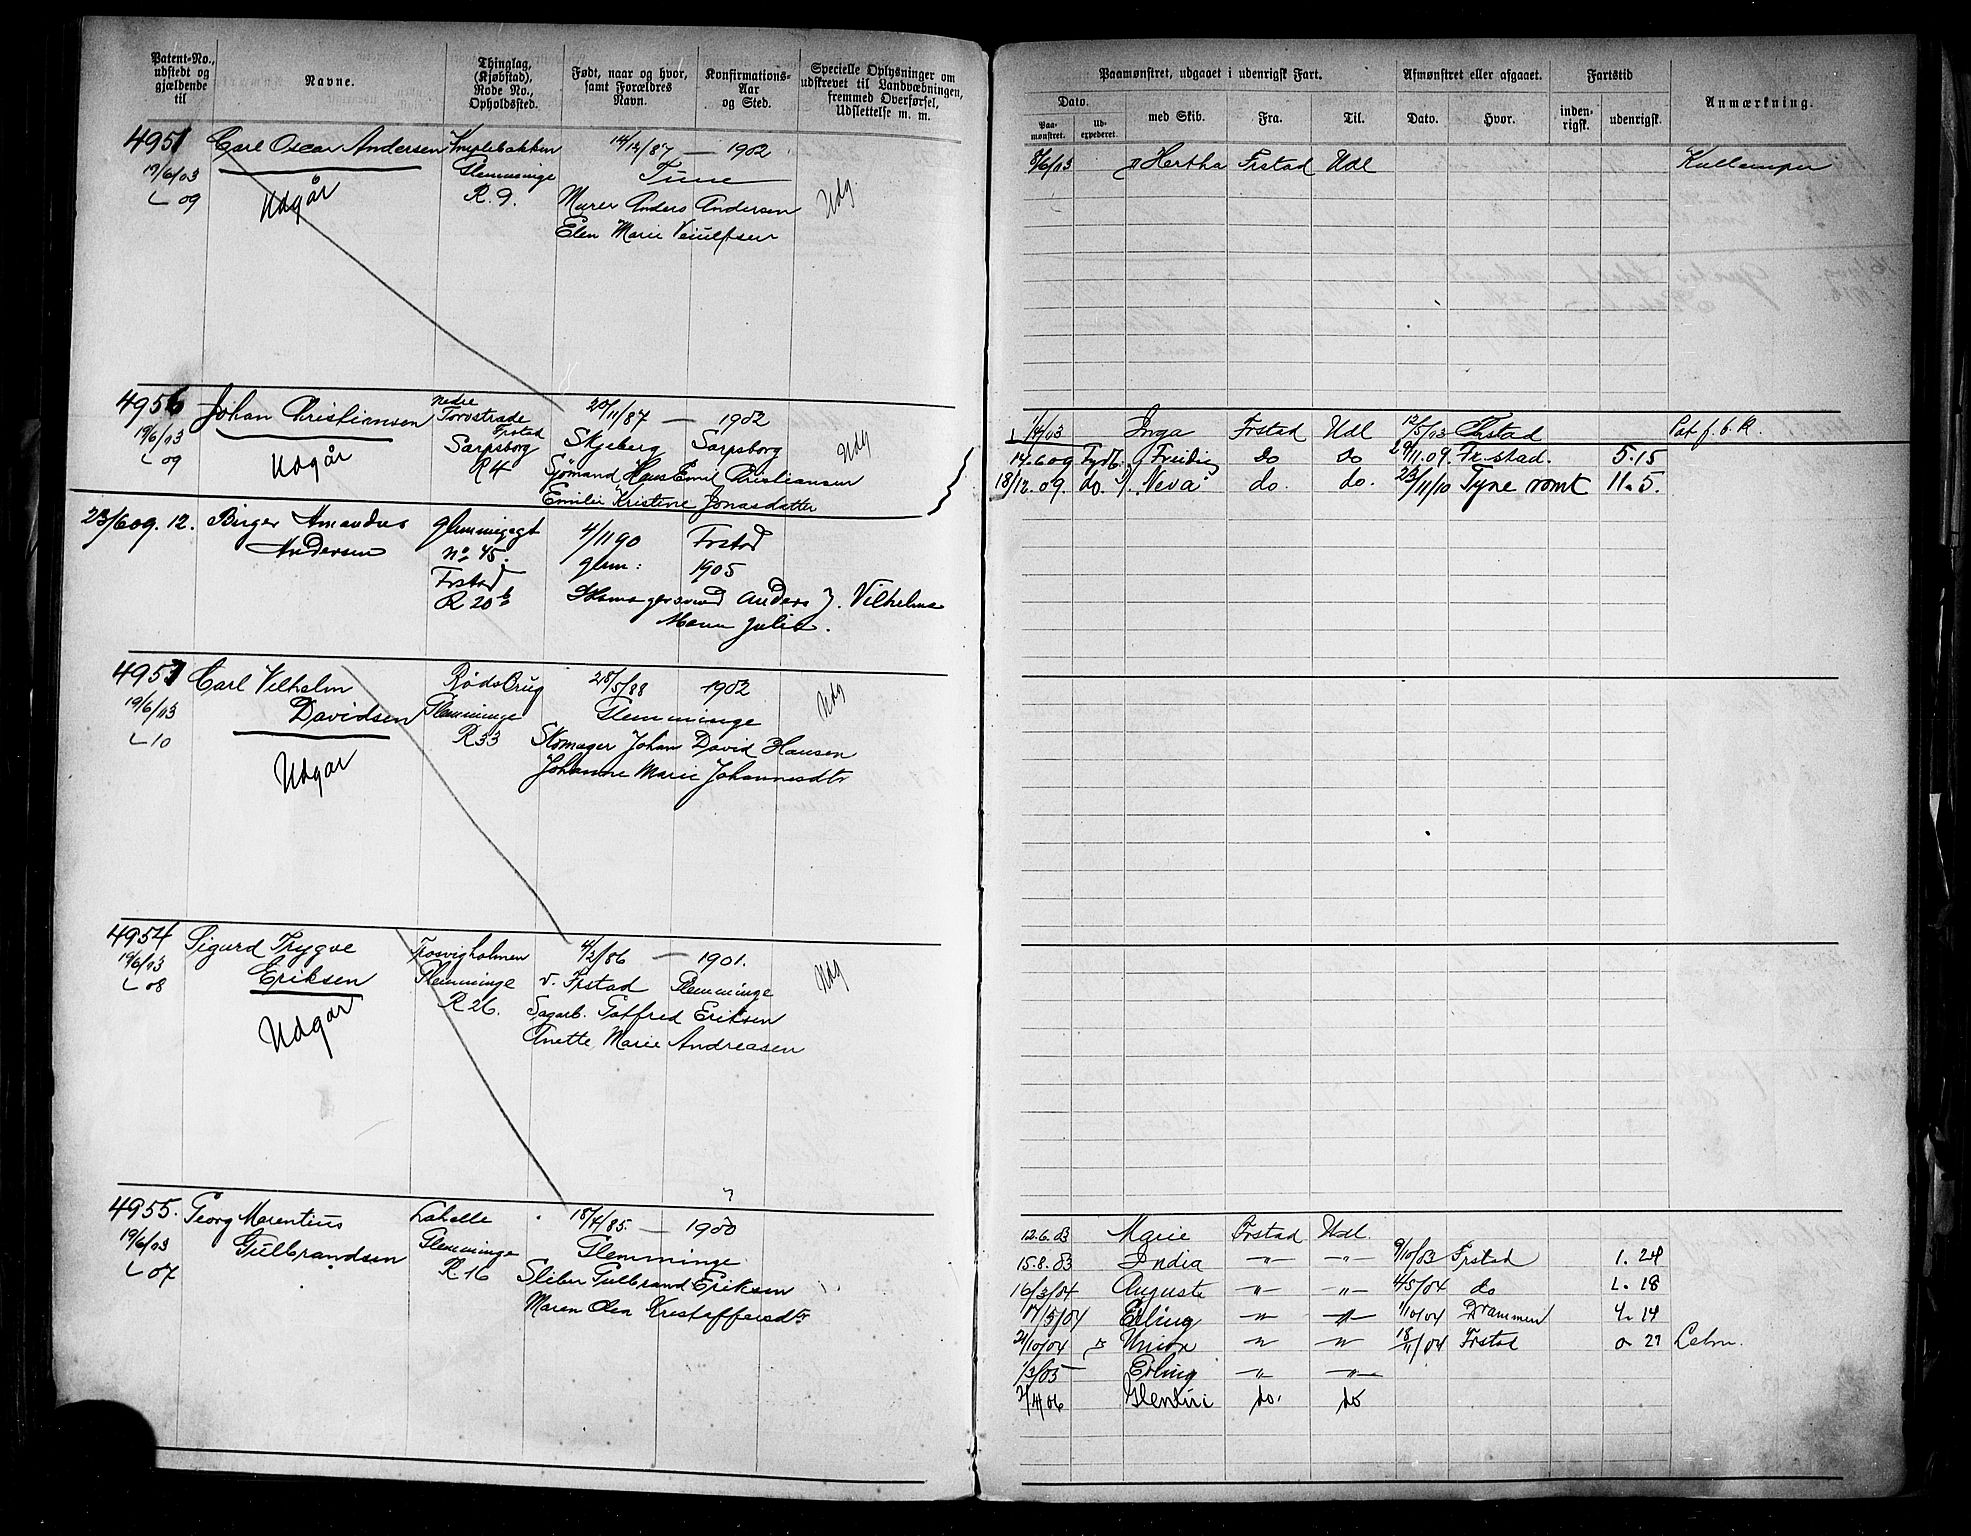 Patent-No., udstedt og gjældende til
Navne.
Thinglag, (Kjøbstad), Rode No., Opholdssted.
Født, naar og hvor, samt Forældres Navn.
Konfirmations-Aar og Sted.
Specielle Oplysninger om udskrevet til Landvæbningen, fremmed Overførsel, Udslettelse m. m.
Paamønstret, udgaaet i udenrigsk Fart.
Afmønstret eller afgaaet.
Fartstid
Anmærkning.
Dato.
Paa-mønstret.
Ud-expederet.
med Skib.
Fra.
Til.
Dato.
Hvor.
inden-rigsk.
udenrigsk.
4951 Carl Oscar Andersen 14/12/87 — 1902
19/6/03 Glemminge Tune
L 09 Udgår R. 9. Murer Anders Andersen Udg.
Elen Marie
8/6/03 Hertha Frstad Udl
4956 Johan Christiansen Nedre Torvstrade Frstad 20/11/87 — 1902
19/6/03 Sarpsborg Skjeberg Sarpsborg Udg
L 09 Udgår R 4 Sjømand Hans Emil Christiansen
Emilie Kristine Jonasdatter
1/4/03 Inga Frstad Udl 12/5/03 Frstad Pat. f. b. R.
14.6 09 Do Do 29/11.09. Fr.stad. 5.15
18/12.09. do. Neva do. do. 23/11/10 Tyne 11. 5.
23/6 09. 12. Birger Amandus Andersen 4/11 90 Frstad
No 45. glem: 1905
Frstad
R 20 b Anders J. Vilhelms
Julie.
4957 Carl Vilhelm Davidsen Røds Brug 28/5/88 1902 Udg
19/6/03 Glemminge Glemminge
L 10 R 33 Skomager Johan David Hansen
Udgår Johanne Marie Johannesdtr
4954 Sigurd Trygve Eriksen Trosvigholmen 4/2/86 — 1901. Udg
19/6/03 Glemminge v. Frstad Glemminge
L 08 R 26. Sagarb. Gotfred Eriksen
Udgår Anette Marie Andreasen
4955. Georg Marentius Gulbrandsen Lahelle 18/4/85. — 1900
19/6/03 Glemminge Glemminge
L 07 R 16 Sliber Gulbrand Eriksen
Maren Olea Kristoffersdtr
12.6.03 Marie Frstad Udl.
15.8.03 India —"— —"— 9/10/03 Frstad 1. 24
16/3/04 Auguste —"— —"— 4/5/04 do 1. 18
17/5/04 Erling —"— —"— 1/10/04 Drammen 4. 14
21/10/04 Union —"— —"— 18/11/04 Frstad 0 27
1/3/05 — Erling —"— —"—
do. do